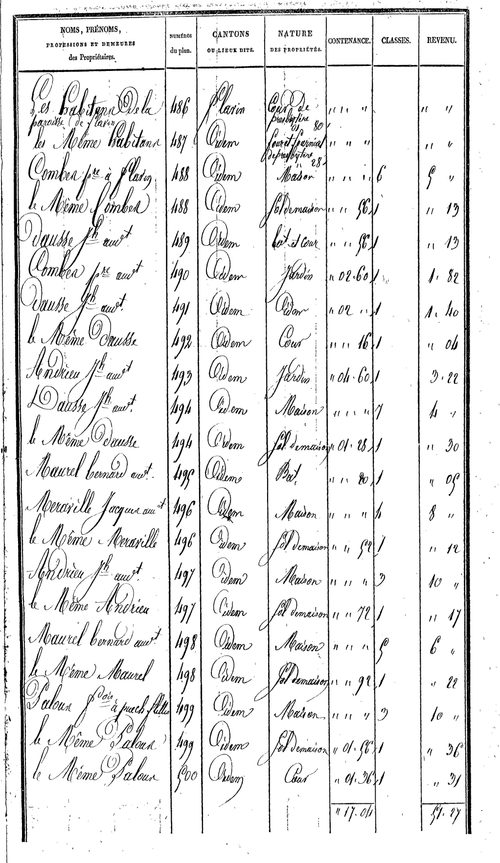 NOMS, PRÉNOMS, PROFESSIONS ET DEMEURES des Propriétaires. NUMÉROS du plan. CANTONS OU LIEUX DITS. NATURE DES PROPRIÉTÉS. CONTENANCE. CLASSES. REVENU.
Les habitans De la paroisse de flavin 486 flavin Cour de presbytère " " " " "
les Même habitans 487 Idem " " " " "
Combes pre à flavin 488 Idem Maison " " " 6 5 "
le Même Combes 488 Idem Sol de maison " " 56 1 " 13
Dausse Jh aud.t 489 Idem bat. et Cour " " 56 1 " 13
Combes pre aud.t 490 Idem Jardin " 02 60 1 1. 82
Dausse Jh aud.t 491 Idem Idem " 02 " 1 1. 40
le Même Dausse 492 Idem Cour " " 16 1 " 04
Andrieu Jh aud.t 493 Idem Jardin " 04 60 1 3. 22
Dausse Jh aud.t 494 Idem Maison " " " 7 4 "
le Même Dausse 494 Idem Sol de maison " 01 28 1 " 30
Maurel bernard aud.t 495 Idem Bat. " " 20 1 " 05
Meraville Jacques aud.t 496 Idem Maison " " " 4 8 "
le Même Meraville 496 Idem Sol de maison " " 52 1 " 12
Andrieu Jh aud.t 497 Idem Maison " " " 3 10 "
le Même Andrieu 497 Idem Sol de maison " " 72 1 " 17
Maurel bernard aud.t 498 Idem Maison " " " 5 6 "
le Même Maurel 498 Idem Sol de maison " " 92 1 " 22
Paloux à puech 499 Idem Maison " " " 3 10 "
le Même Paloux 499 Idem Sol de maison " 01 56 1 " 36
le Même Paloux 500 Idem Cour " 01 36 1 " 31
" 17. 04 51. 27